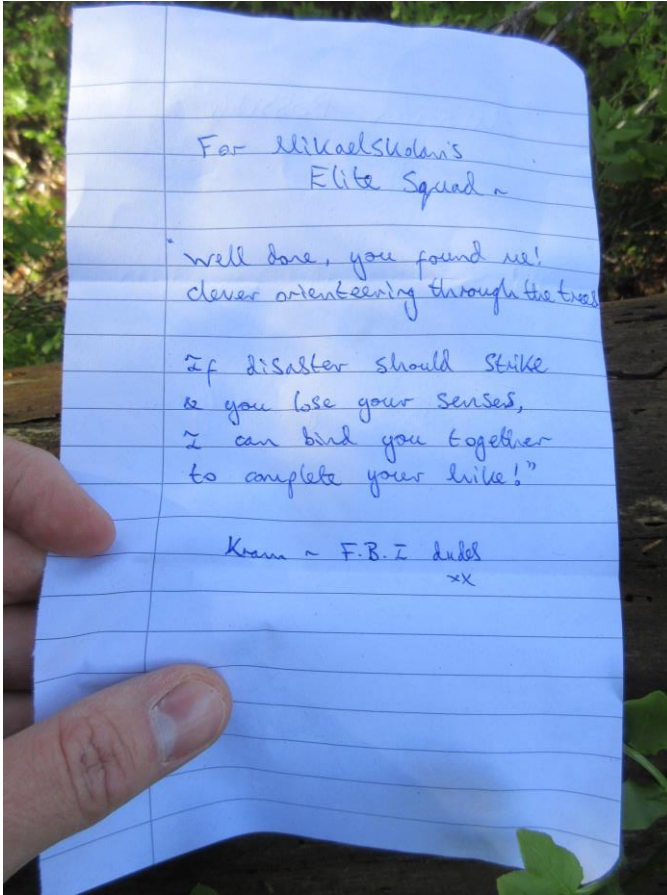 For Mikaelskolan's
Elite Squad ~
"well done, you found me!
clever orienteering through the trees
If disaster should strike
& you lose your senses,
I can bind you together
to complete your hike!"
Kram ~ F.B.I dudes
xx